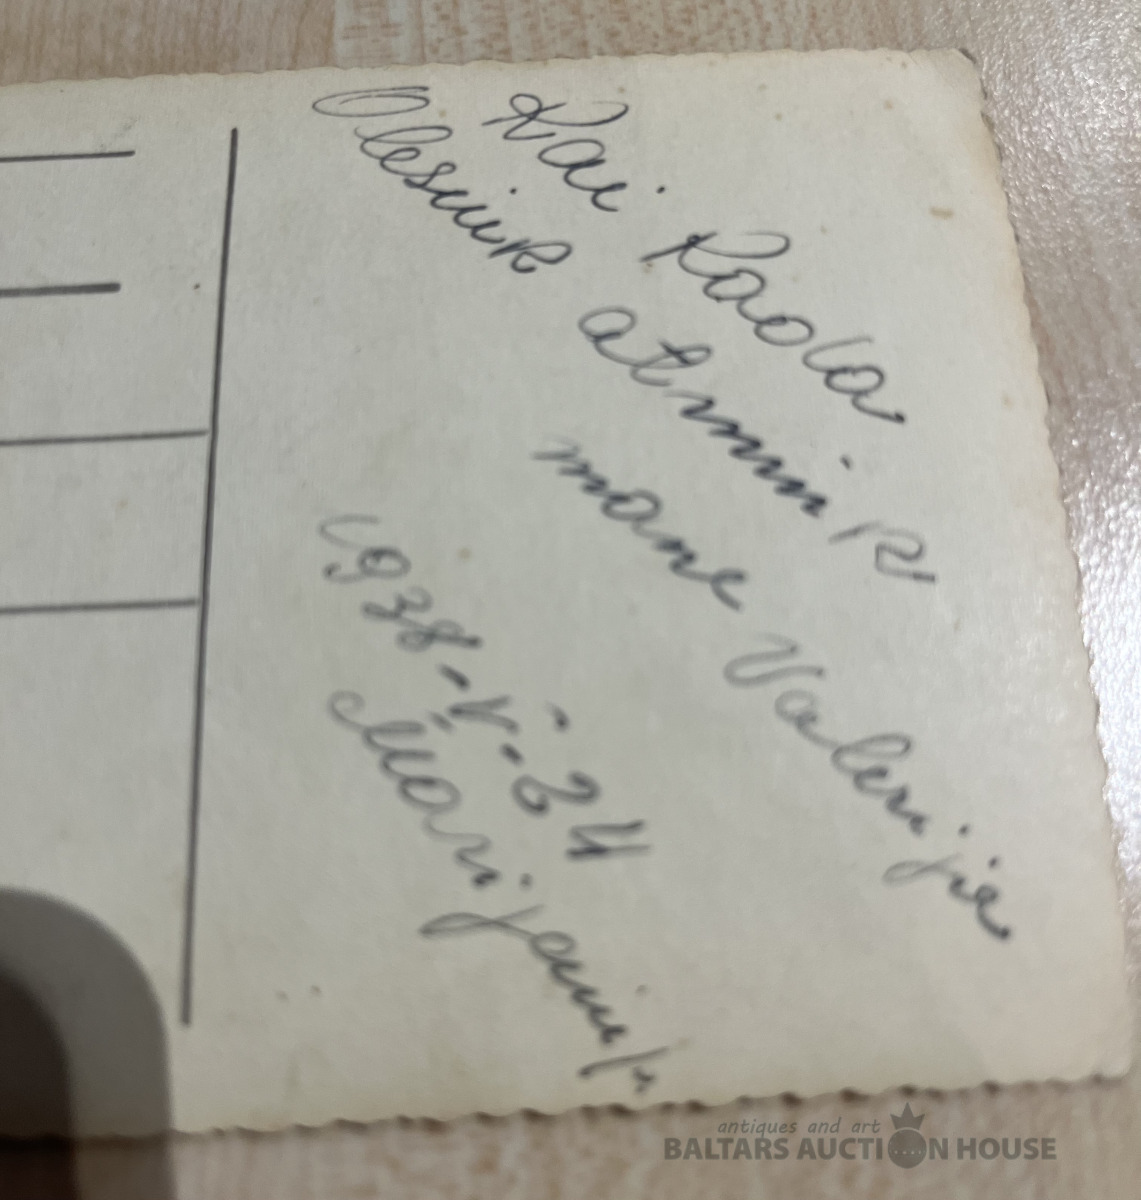 Kai Rada
Olesuik atmink
mane Valerija
1938-V-24
Marijam
antiques and art
BALTARS AUCTION HOUSE